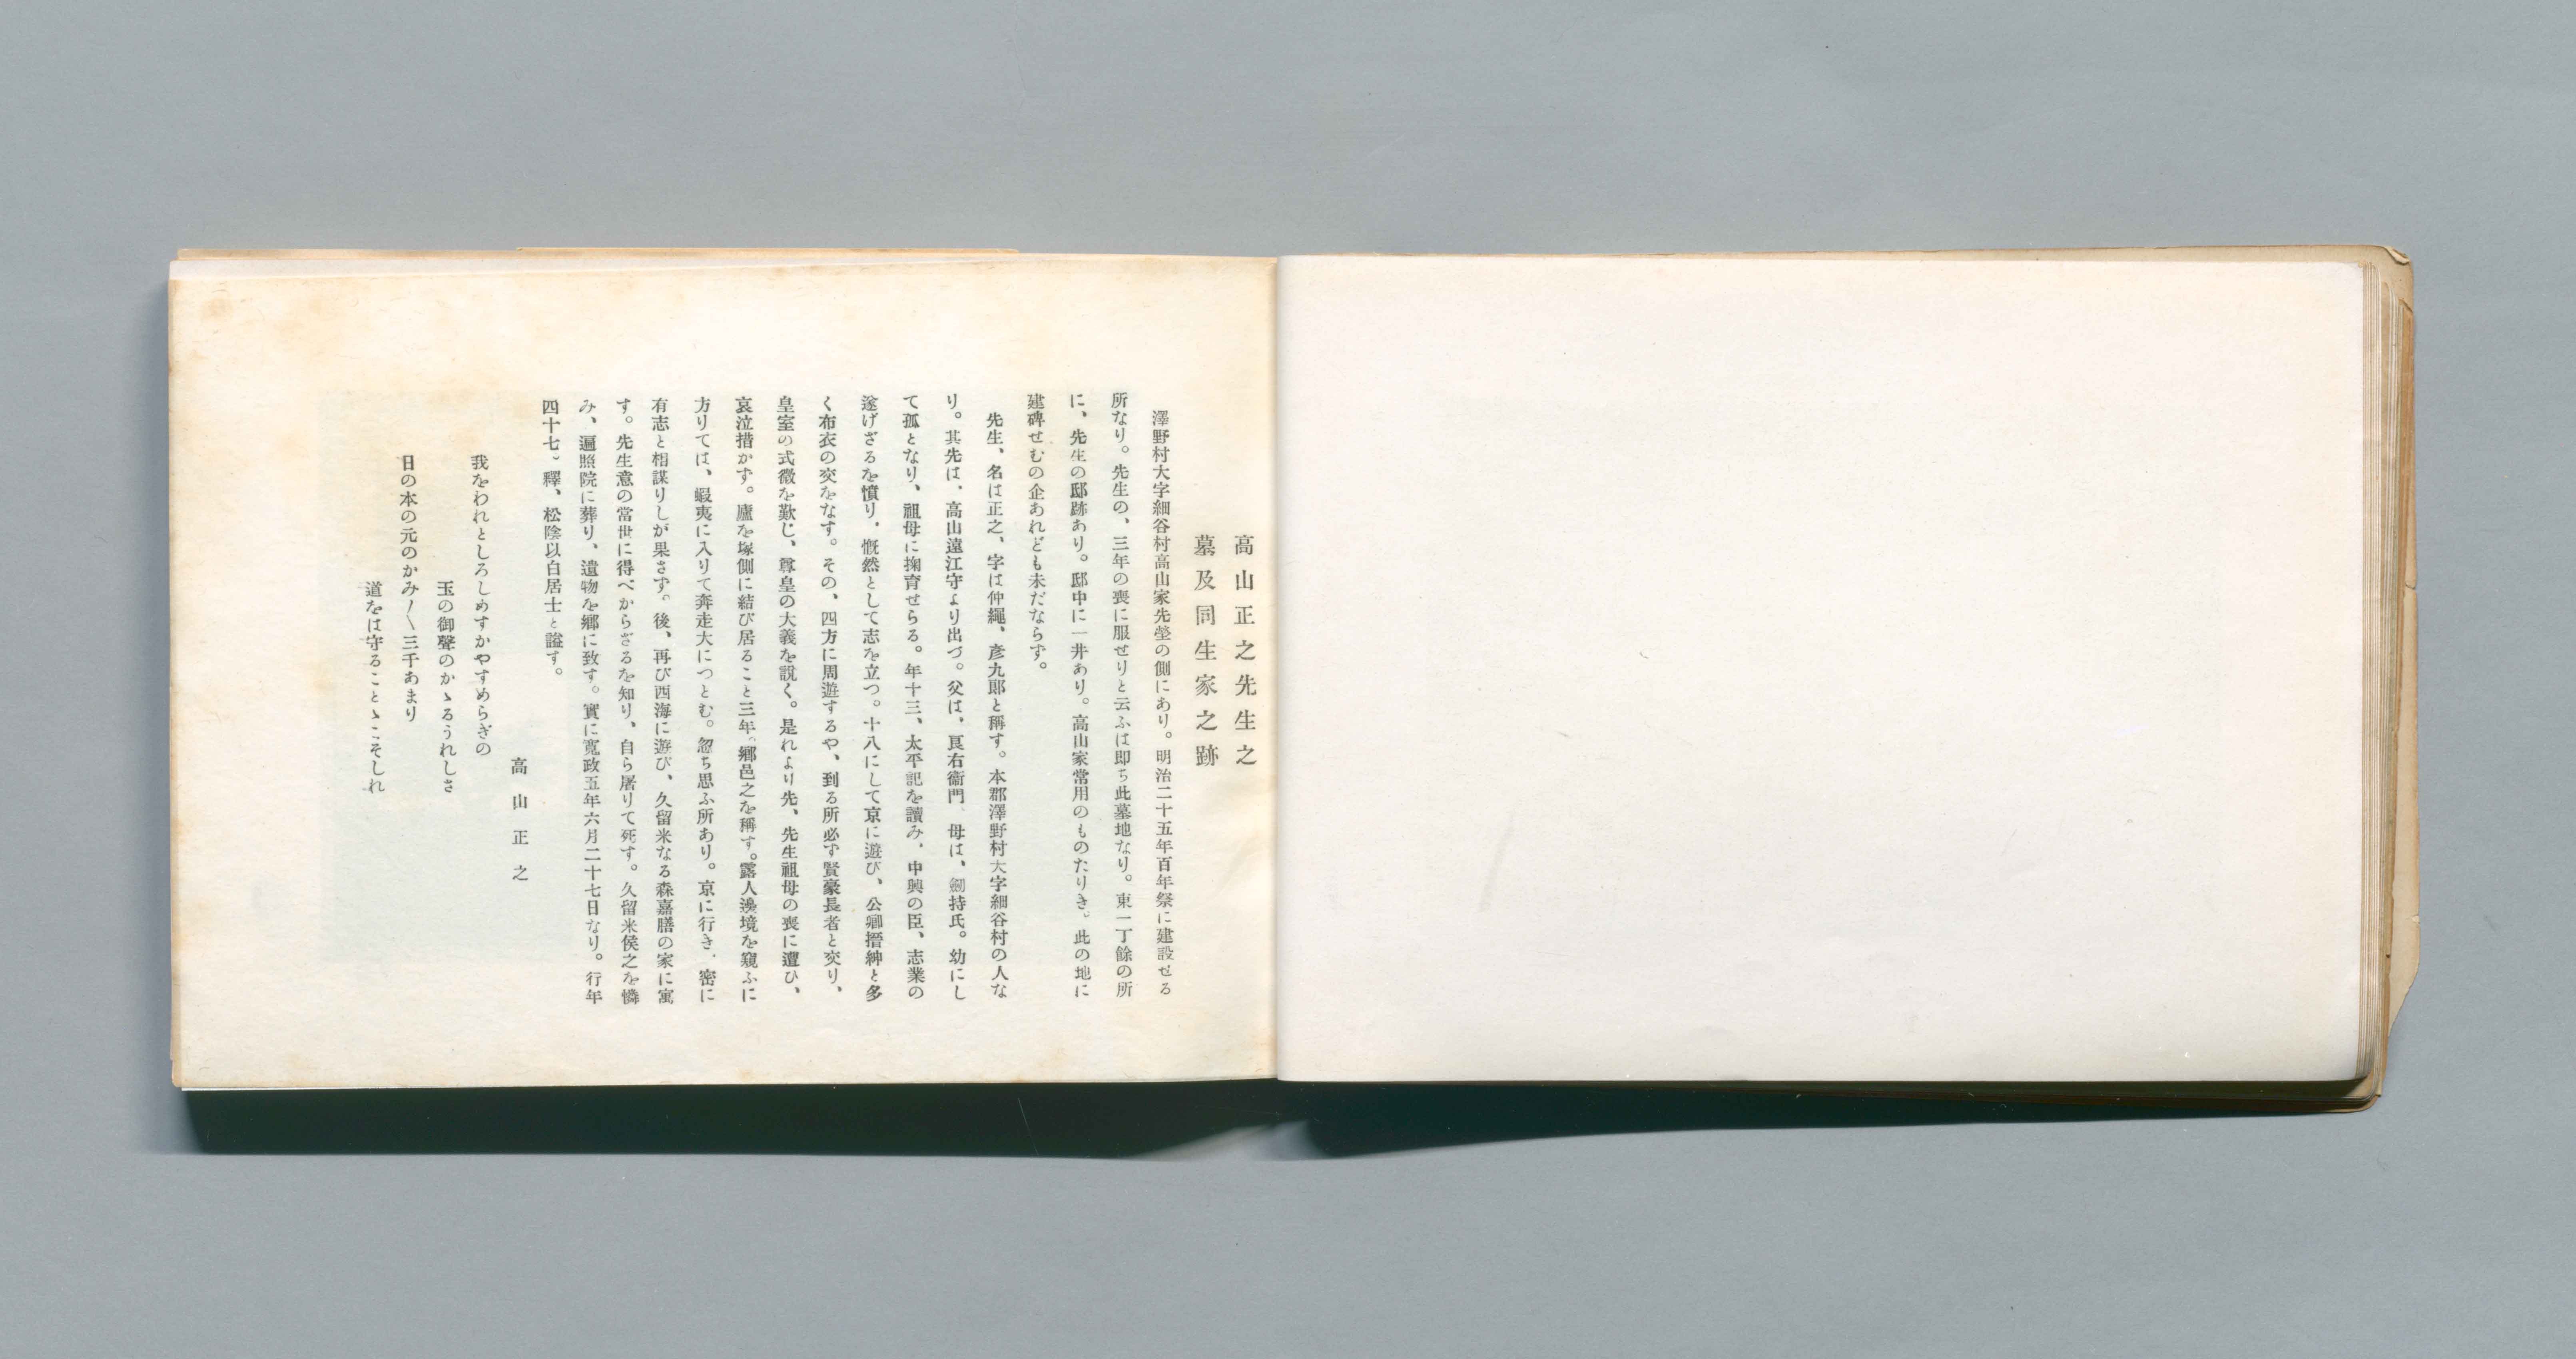 高山正之先生之
墓及同生家之跡
澤野村大字細谷村高山家先塋の側にあり。明治二十五年百年祭に建設せる
所なり。先生の、三年の喪に服せりと云ふは即ち此墓地なり。東一丁餘の所
に、先生の邸跡あり。邸中に一井あり。高山家常用のものたりき。此の地に
建碑せむの企あれども未だならず。
先生、名は正之、字は仲繩、彦九郎と稱す。本郡澤野村大字細谷村の人な
り。其先は、高山遠江守より出づ。父は、良右衞門、母は、劔持氏。幼にし
て孤となり、祖母に掬育せらる。年十三、太平記を讀み、中興の臣、志業の
遂げざるを憤り、慨然として志を立つ。十八にして京に遊び、公卿搢紳と多
く布衣の交をなす。その、四方に周遊するや、到る所必ず賢豪長者と交り、
皇室の式微を歎じ、尊皇の大義を説く。是れより先、先生祖母の喪に遭ひ、
哀泣措かず。廬を塚側に結び居ること三年。鄕邑之を稱す。露人邊境を窺ふに
方りては、蝦夷に入りて奔走大につとむ。忽ち思ふ所あり。京に行き、密に
有志と相謀りしが果さず。後、再び西海に遊び、久留米なる森嘉膳の家に寓
す。先生意の當世に得べからざるを知り、自ら屠りて死す。久留米侯之を憐
み、遍照院に葬り、遺物を鄕に致す。實に寬政五年六月二十七日なり。行年
四十七。釋、松陰以白居士と謚す。
高山正之
我をわれとしろしめすかやすめらぎの
玉の御聲のかゝるうれしさ
日の本の元のかみ〳〵三千あまり
道をは守ることゝこそしれ